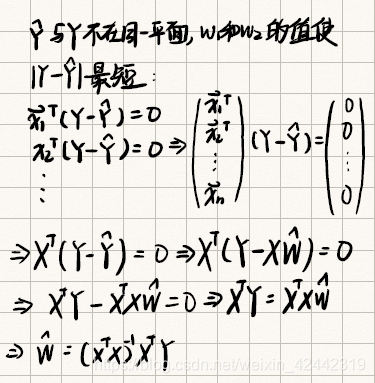 Ŷ与Y不在同一平面, w₁和w₂的值使
|Y-Ŷ|最短:
x⃗₁ᵀ(Y-Ŷ)=0
x₂ᵀ(Y-Ŷ)=0 ⇒ (x⃗₁ᵀ x⃗₂ᵀ ⋮ x⃗ₙ) (Y-Ŷ) = (0 0 ⋮ 0)
⋮
⇒Xᵀ(Y-Ŷ)=0 ⇒Xᵀ(Y-XŴ)=0
⇒ XᵀY-XᵀXŴ=0 ⇒XᵀY=XᵀXŴ
⇒ Ŵ=(XᵀX)⁻¹XᵀY
https://blog.csdn.net/weixin_42442319